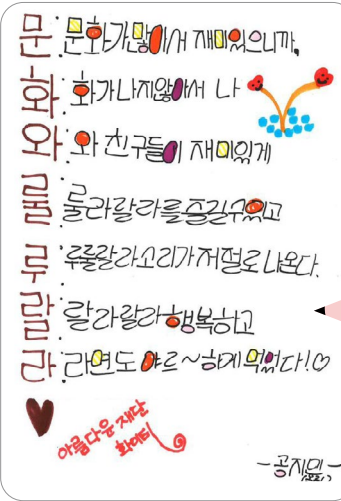 문: 문화가많아서 재미있으니까,
화: 화가나지않아서 나
와: 와 친구들이 재미있게
룰: 룰라랄라를즐길수있고
루: 루룰랄라소리가저절로나온다.
랄: 랄라랄라행복하고
라: 라면도 야르~하게먹었다!♡
아름다운재단
화이티
-공지민-